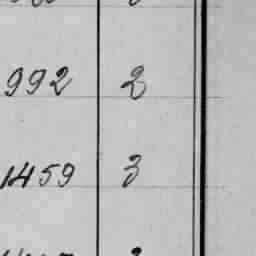 992 2
1459 3